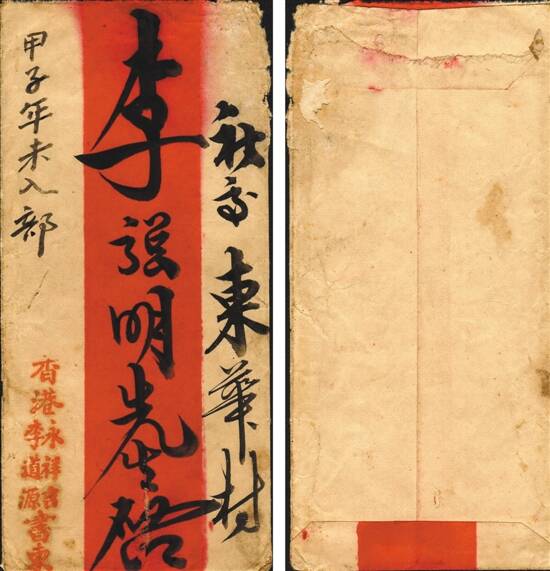 東華村
李明先生啓
甲子年未入部
香港
永祥吉
李道源
書柬